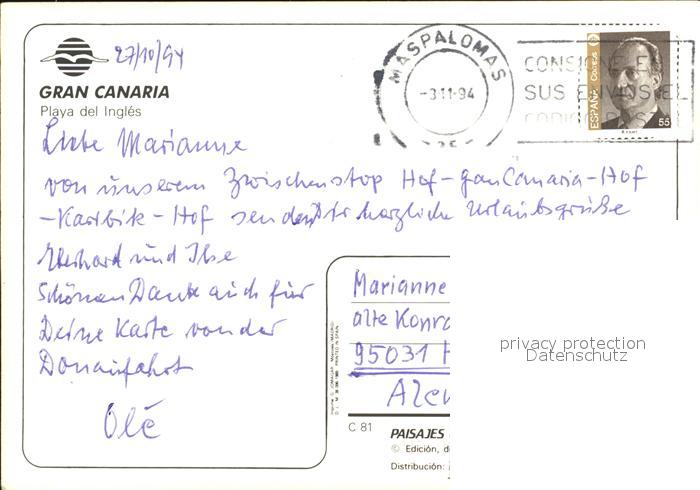 27/10/94
GRAN CANARIA
Playa del Inglés
MASPALOMAS
-3.11.94
CONSIGNE EN
SUS ENVIOS EL
CODIGO POSTAL
ESPAÑA Correos
55
Liebe Marianne
von unserem Zwischenstop Hof-gran Canaria-Hof
-Karibik-Hof sendet Dir herzliche Urlaubsgrüße
Eberhard und Ilse
Schönen Dank auch für
Deine Karte von der
Donaufahrt
Olé
Marianne
alte Konra
95031 H
privacy protection
Datenschutz
C 81
PAISAJES
© Edición, d
Distribución: